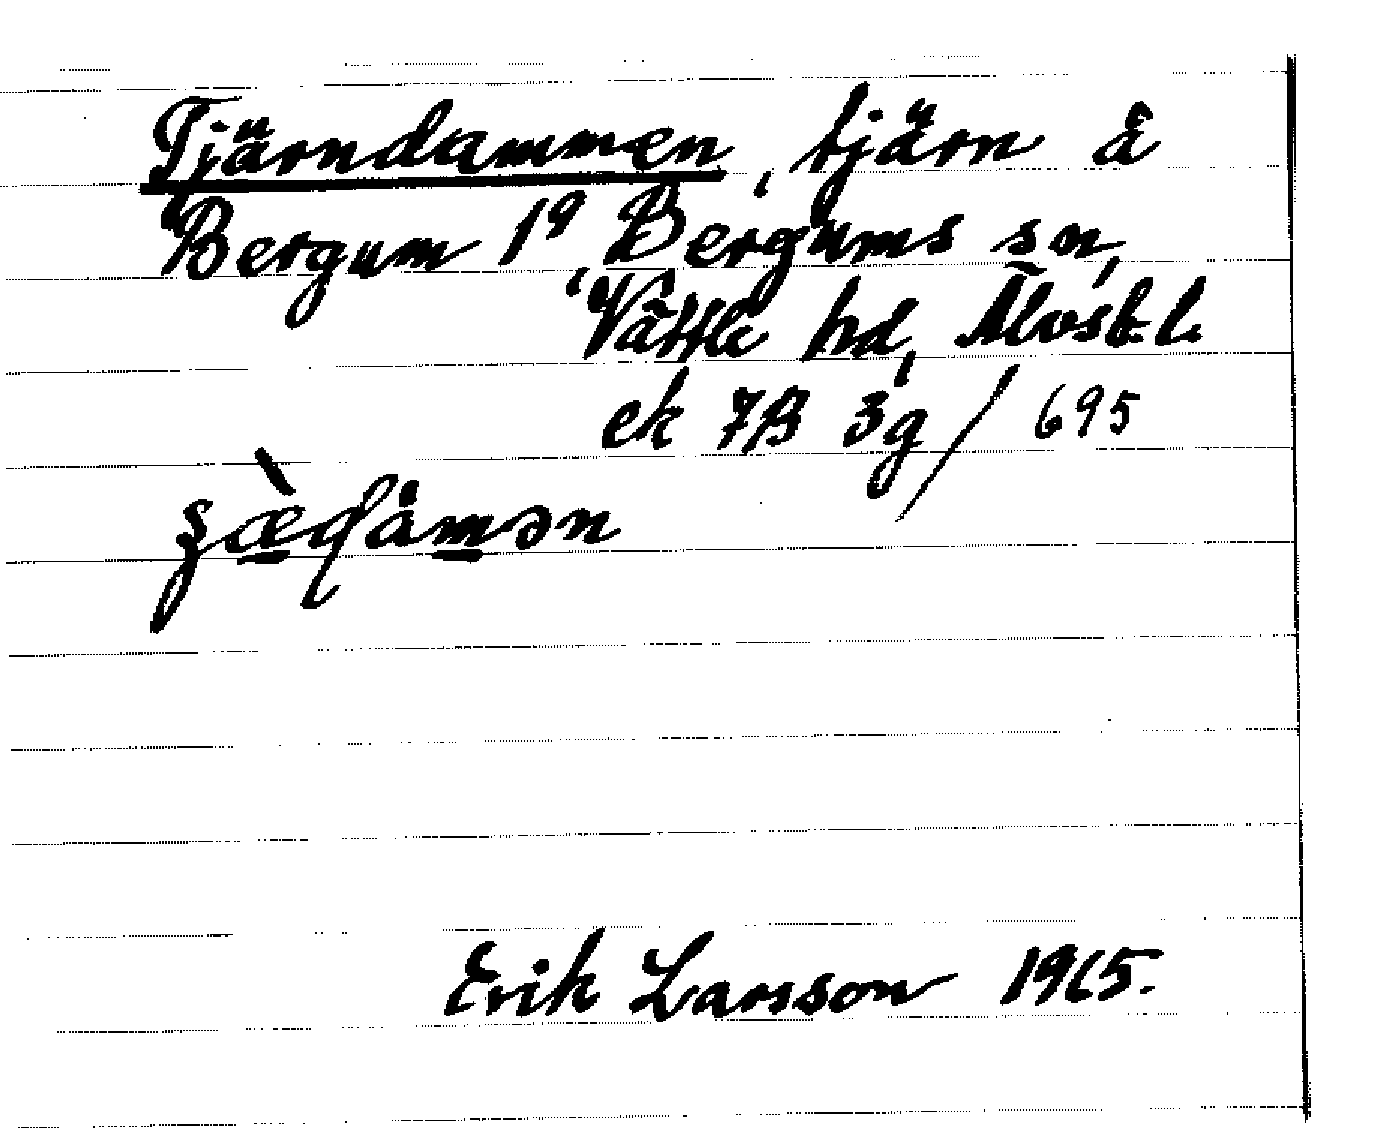 Tjärndammen, tjärn å
Bergum 1⁹, Bergums sn,
Vättle hd, Älvsb. l.
ek 7B 3g / 695
Erik Larsson 1965.